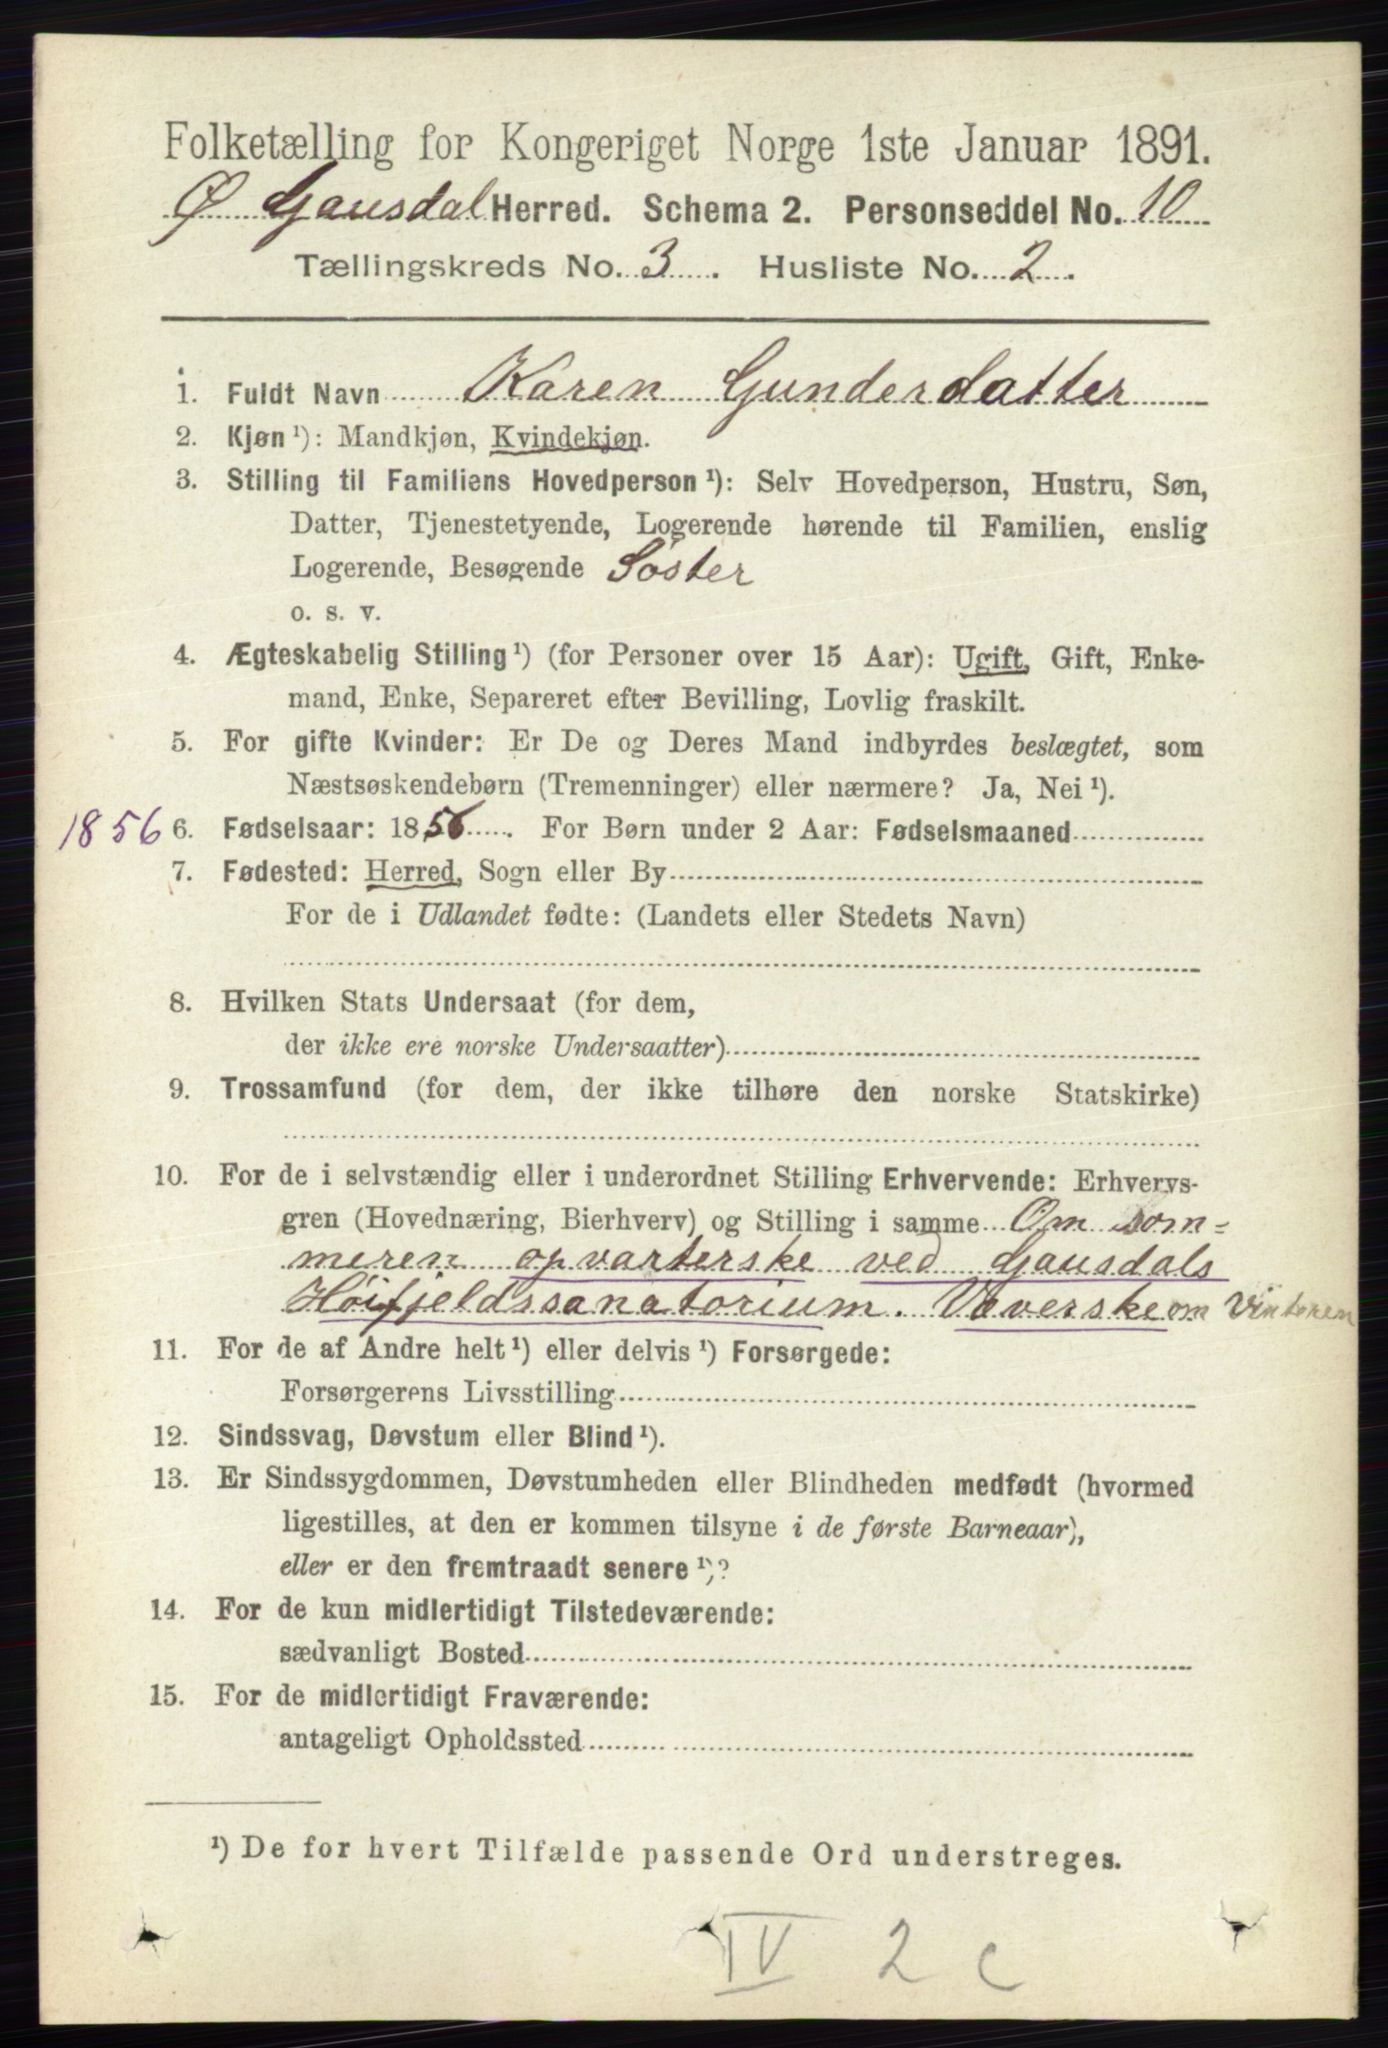 Folketælling for Kongeriget Norge 1ste Januar 1891.
Ø Gausdal Herred. Schema 2. Personseddel No. 10
Tællingskreds No. 3. Husliste No. 2.
1. Fuldt Navn Karen Gunderdatter
2. Kjøn ¹): Mandkjøn, Kvindekjøn.
3. Stilling til Familiens Hovedperson ¹): Selv Hovedperson, Hustru, Søn,
Datter, Tjenestetyende, Logerende hørende til Familien, enslig
Logerende, Besøgende Söster
o. s. v.
4. Ægteskabelig Stilling ¹) (for Personer over 15 Aar): Ugift, Gift, Enke-
mand, Enke, Separeret efter Bevilling, Lovlig fraskilt.
5. For gifte Kvinder: Er De og Deres Mand indbyrdes beslægtet, som
Næstsøskendebørn (Tremenninger) eller nærmere? Ja, Nei ¹).
1856 6. Fødselsaar: 1856. For Børn under 2 Aar: Fødselsmaaned
7. Fødested: Herred, Sogn eller By
For de i Udlandet fødte: (Landets eller Stedets Navn)
8. Hvilken Stats Undersaat (for dem,
der ikke ere norske Undersaatter)
9. Trossamfund (for dem, der ikke tilhøre den norske Statskirke)
10. For de i selvstændig eller i underordnet Stilling Erhvervende: Erhvervs-
gren (Hovednæring, Bierhverv) og Stilling i samme Om Som=
meren opvarterske ved Gausdals
Höifjeldssanatorium. Væverske om Vinteren
11. For de af Andre helt ¹) eller delvis ¹) Forsørgede:
Forsørgerens Livsstilling
12. Sindssvag, Døvstum eller Blind ¹).
13. Er Sindssygdommen, Døvstumheden eller Blindheden medfødt (hvormed
ligestilles, at den er kommen tilsyne i de første Barneaar),
eller er den fremtraadt senere ¹)?
14. For de kun midlertidigt Tilstedeværende:
sædvanligt Bosted
15. For de midlertidigt Fraværende:
antageligt Opholdssted
¹) De for hvert Tilfælde passende Ord understreges.
IV 2 c